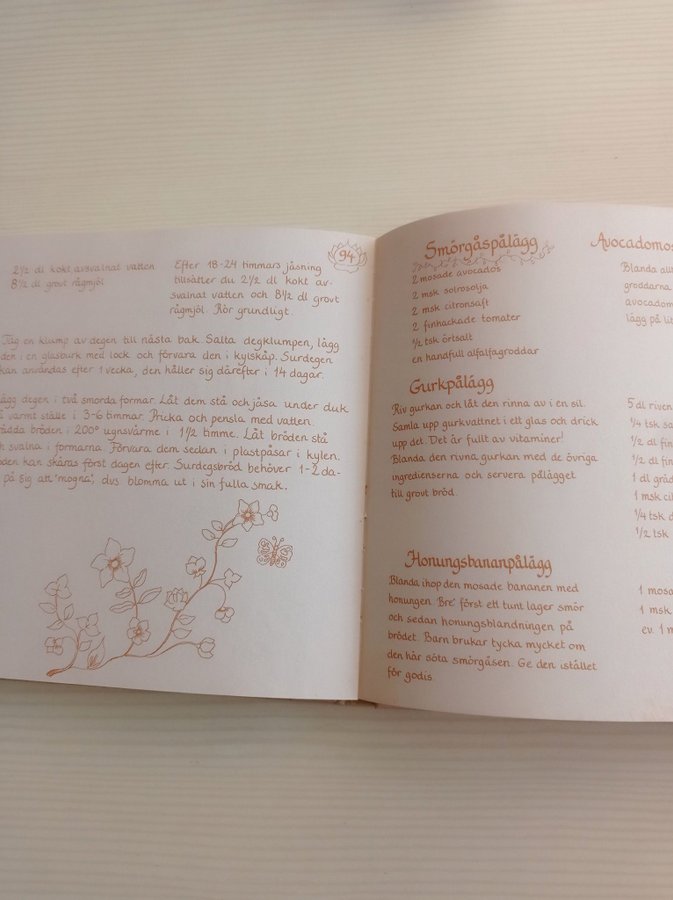 2½ dl kokt avsvalnat vatten
8½ dl grovt rågmjöl
94
Efter 18-24 timmars jäsning
tillsätter du 2½ dl kokt av-
svalnat vatten och 8½ dl grovt
rågmjöl. Rör grundligt.
Tag en klump av degen till nästa bak. Salta degklumpen, lägg
den i en glasburk med lock och förvara den i kylskåp. Surdegen
kan användas efter 1 vecka, den håller sig därefter i 14 dagar.
ägg degen i två smorda formar. Låt dem stå och jäsa under duk
å varmt ställe i 3-6 timmar. Pricka och pensla med vatten.
rädda bröden i 200° ugnsvärme i 1½ timme. Låt bröden stå
h svalna i formarna. Förvara dem sedan i plastpåsar i kylen.
öden kan skäras först dagen efter. Surdegsbröd behöver 1-2 da-
på sig att "mogna", dvs blomma ut i sin fulla smak.
Smörgåspålägg
2 mosade avocados
2 msk solrosolja
2 msk citronsaft
2 finhackade tomater
½ tsk örtsalt
en handfull alfalfagroddar
Avocadomos
Blanda allt
groddarna
avocadom
lägg på lit
Gurkpålägg
Riv gurkan och låt den rinna av i en sil.
Samla upp gurkvattnet i ett glas och drick
upp det. Det är fullt av vitaminer!
Blanda den rivna gurkan med de övriga
ingredienserna och servera pålägget
till grovt bröd.
5 dl riven
¼ tsk sa
½ dl fin
½ dl fin
1 dl gräd
1 msk cit
¼ tsk d
½ tsk
Honungsbananpålägg
Blanda ihop den mosade bananen med
honungen. 'Bre' först ett tunt lager smör
och sedan honungsblandningen på
brödet. Barn brukar tycka mycket om
den här söta smörgåsen. Ge den istället
för godis.
1 mosa
1 msk
ev. 1 m